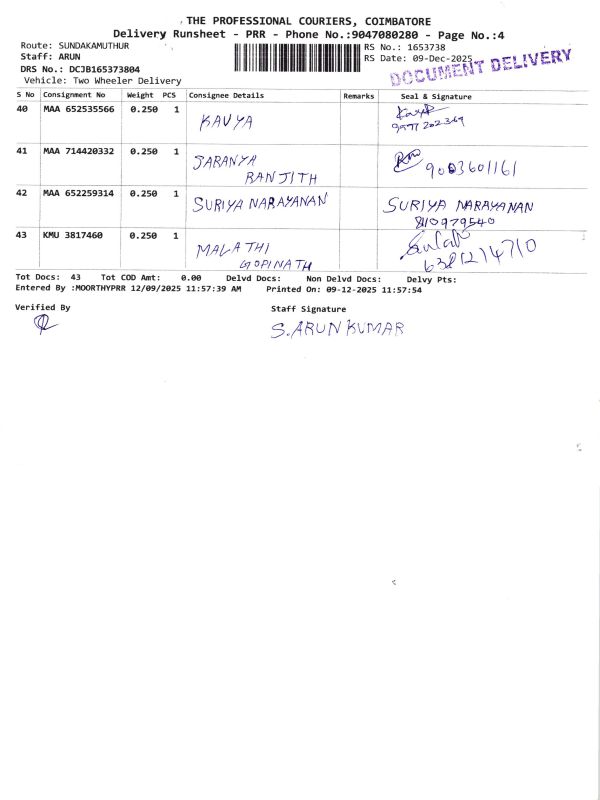 THE PROFESSIONAL COURIERS, COIMBATORE
Delivery Runsheet - PRR - Phone No.:9047080280 - Page No.:4
Route: SUNDAKAMUTHUR RS No.: 1653738
Staff: ARUN RS Date: 09-Dec-2025
DRS No.: DCJB165373804 DOCUMENT DELIVERY
Vehicle: Two Wheeler Delivery
S No Consignment No Weight PCS Consignee Details Remarks Seal & Signature
40 MAA 652535566 0.250 1 KAVYA
41 MAA 714420332 0.250 1 SARANYA
RANJITH 9003601161
42 MAA 652259314 0.250 1 SURIYA NARAYANAN SURIYA NARAYANAN
43 KMU 3817460 0.250 1 MALATHI
GOPINATH
Tot Docs: 43 Tot COD Amt: 0.00 Delvd Docs: Non Delvd Docs: Delvy Pts:
Entered By :MOORTHYPRR 12/09/2025 11:57:39 AM Printed On: 09-12-2025 11:57:54
Verified By Staff Signature
S. ARUN KUMAR